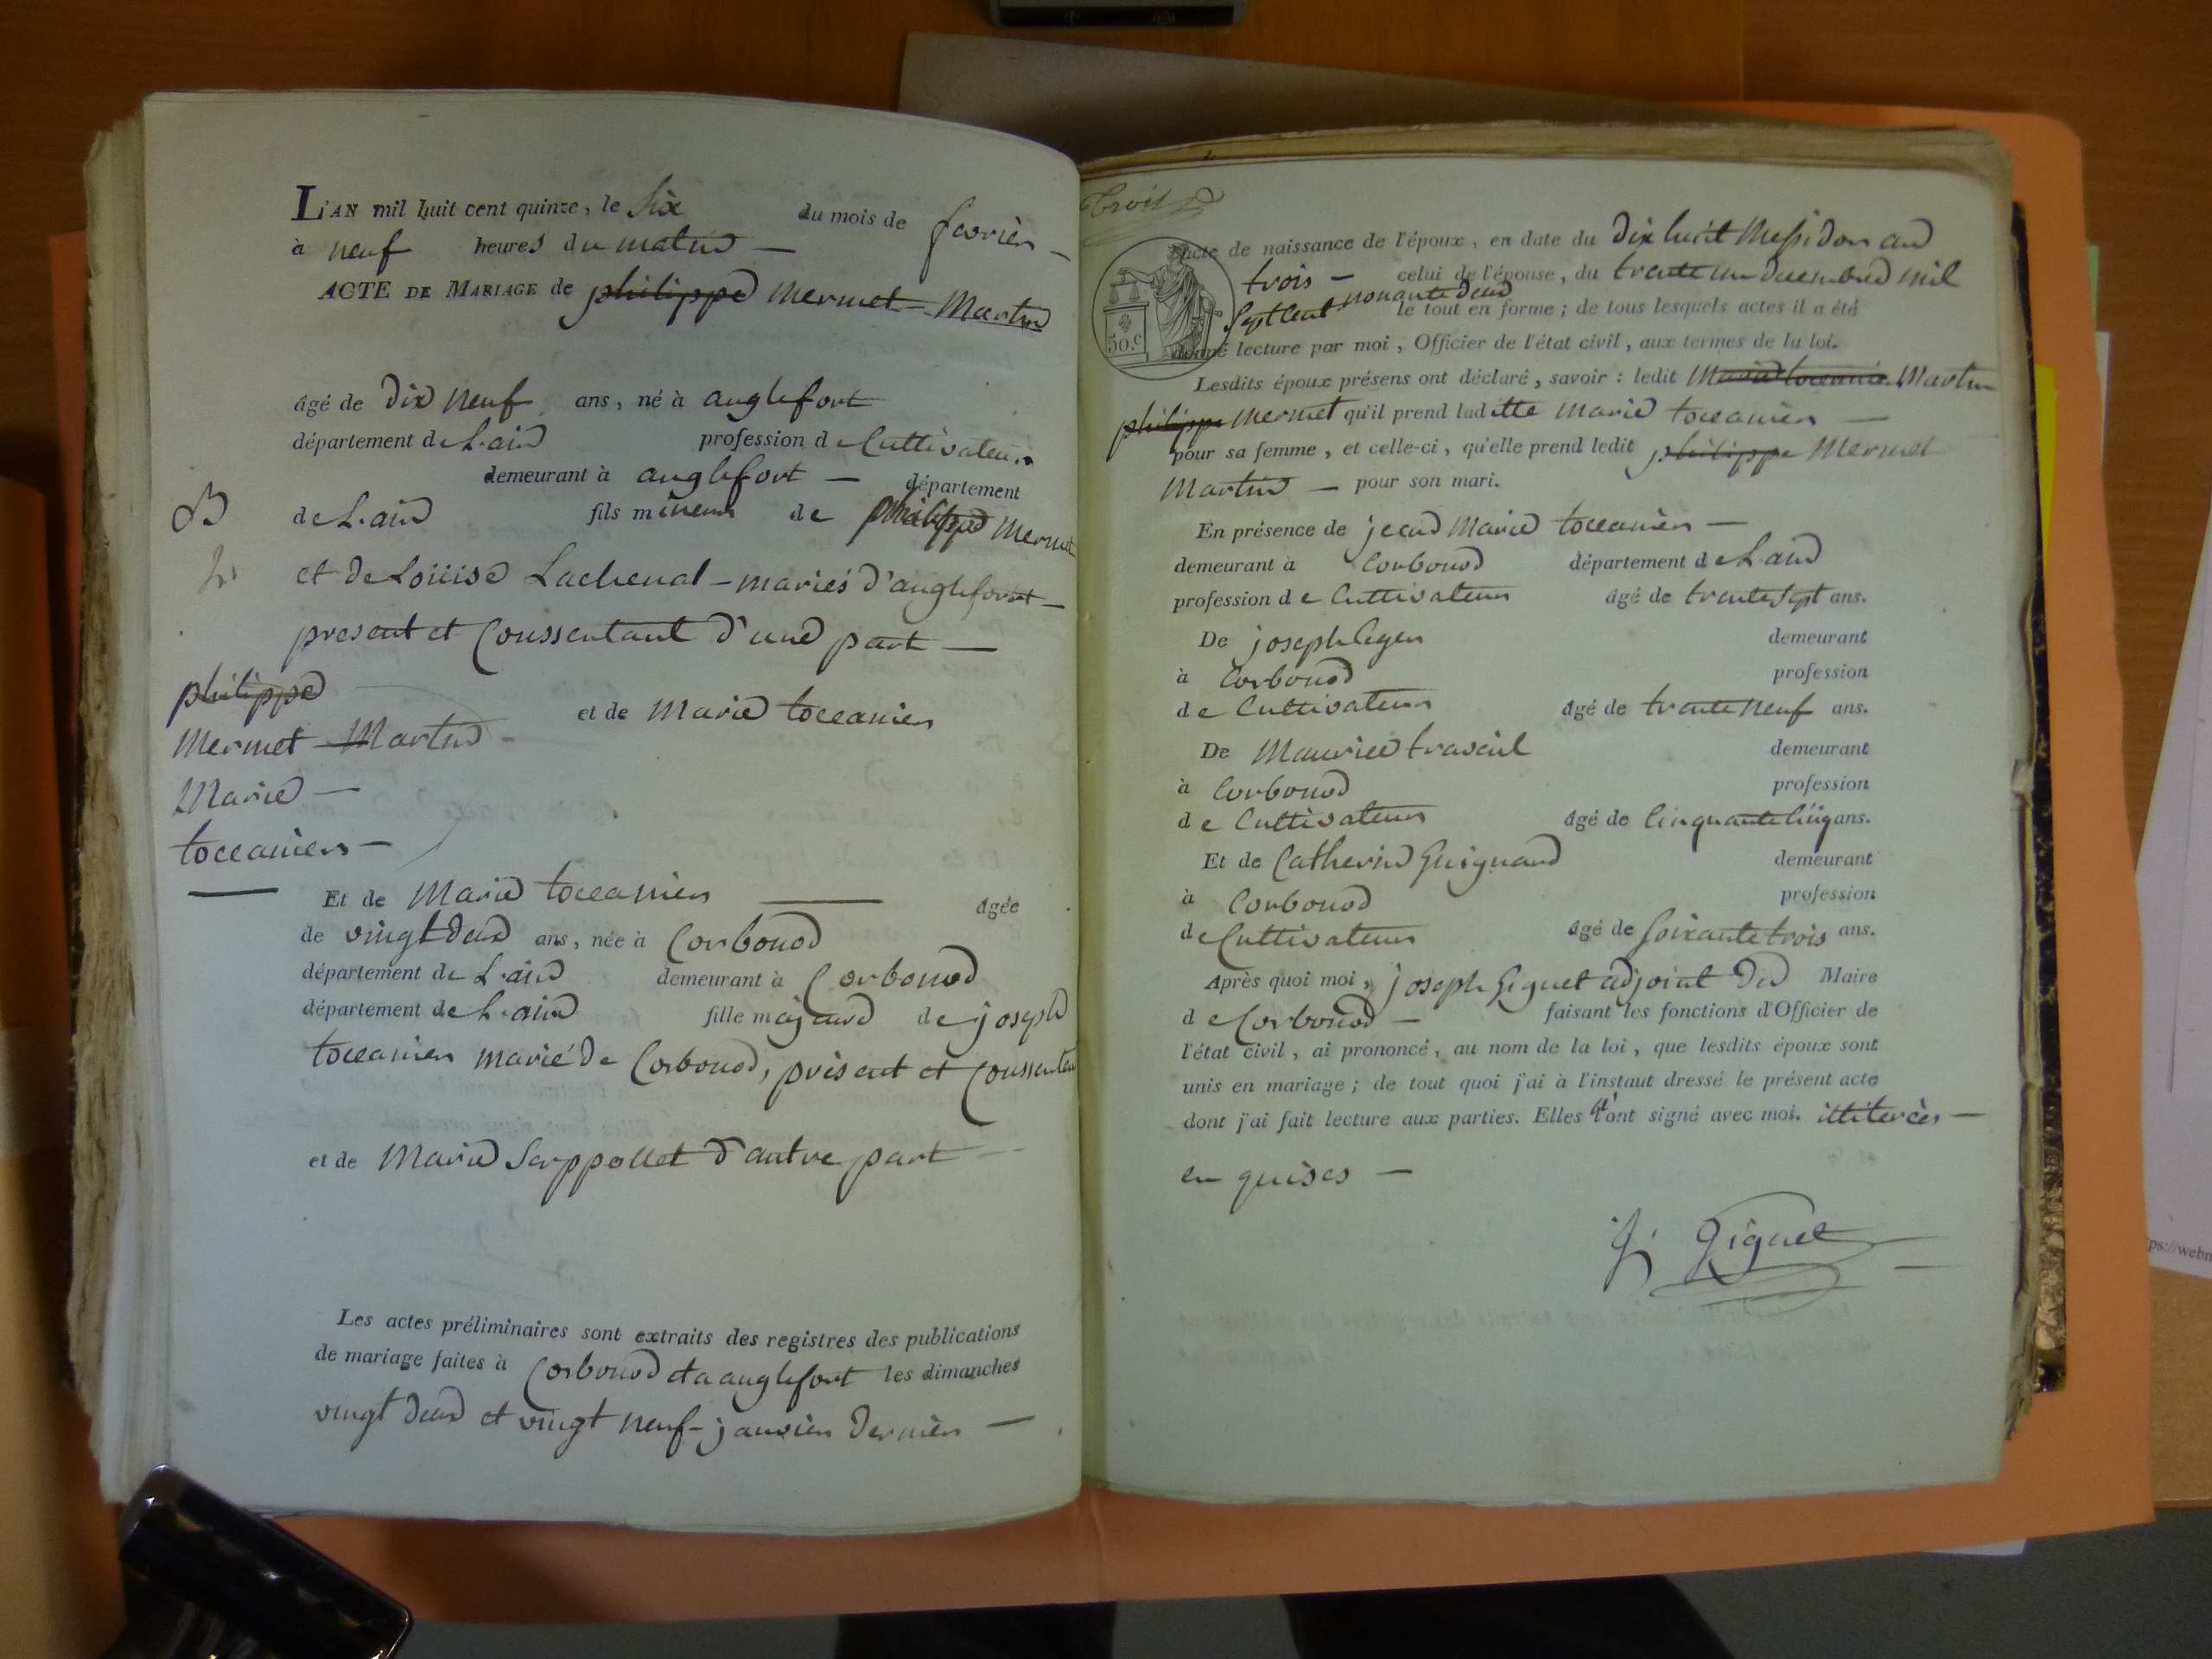 L'AN mil huit cent quinze, le Six du mois de fevrier —
à neuf heures du matin —
ACTE DE MARIAGE de philippe mermet Martin
âgé de dix neuf ans, né à anglefort
département de L'ain profession de Cultivateur
demeurant à anglefort — département
de L'ain fils mineur de philippe mermet
et de Loüise Lachenal - mariés d'anglefort —
present et Conssentant d'une part —
philippe
mermet Martin -
Marie —
toccanier —
et de Marie toccanier
Et de Marie toccanier — âgée
de vingt deux ans, née à Corbonod
département de L'ain demeurant à Corbonod
département de L'ain fille majeure de joseph
toccanier marié de Corbonod, présent et Conssentant
et de Marie Serppollet d'autre part —
Les actes préliminaires sont extraits des registres des publications
de mariage faites à Corbonod et a anglefort les dimanches
vingt deux et vingt neuf - janvier dernier —
Trois
acte de naissance de l'époux, en date du dix huit Messidor an
trois — celui de l'épouse, du trente un decembre mil
Sept Cent nonante deux le tout en forme ; de tous lesquels actes il a été
50.c
donné lecture par moi, Officier de l'état civil, aux termes de la loi.
Lesdits époux présens ont déclaré, savoir : ledit Marie toccanier Martin
philippe mermet qu'il prend laditte marie toccanier —
pour sa femme, et celle-ci, qu'elle prend ledit philippe Mermet
Martin — pour son mari.
En présence de jean Marie toccanier —
demeurant à Corbonod département de L'ain
profession de Cultivateur âgé de trente sept ans.
De joseph demeurant
à Corbonod profession
de Cultivateur âgé de trente neuf ans.
De Maurice travail demeurant
à Corbonod profession
de Cultivateur âgé de Cinquante Cinq ans.
Et de Catherin Guignard demeurant
à Corbonod profession
de Cultivateur âgé de Soixante trois ans.
Après quoi moi, joseph Giguet adjoint du Maire
de Corbonod — faisant les fonctions d'Officier de
l'état civil, ai prononcé, au nom de la loi, que lesdits époux sont
unis en mariage ; de tout quoi j'ai à l'instant dressé le présent acte
dont j'ai fait lecture aux parties. Elles n'ont signé avec moi. illiterés —
en quises —
J Giguet